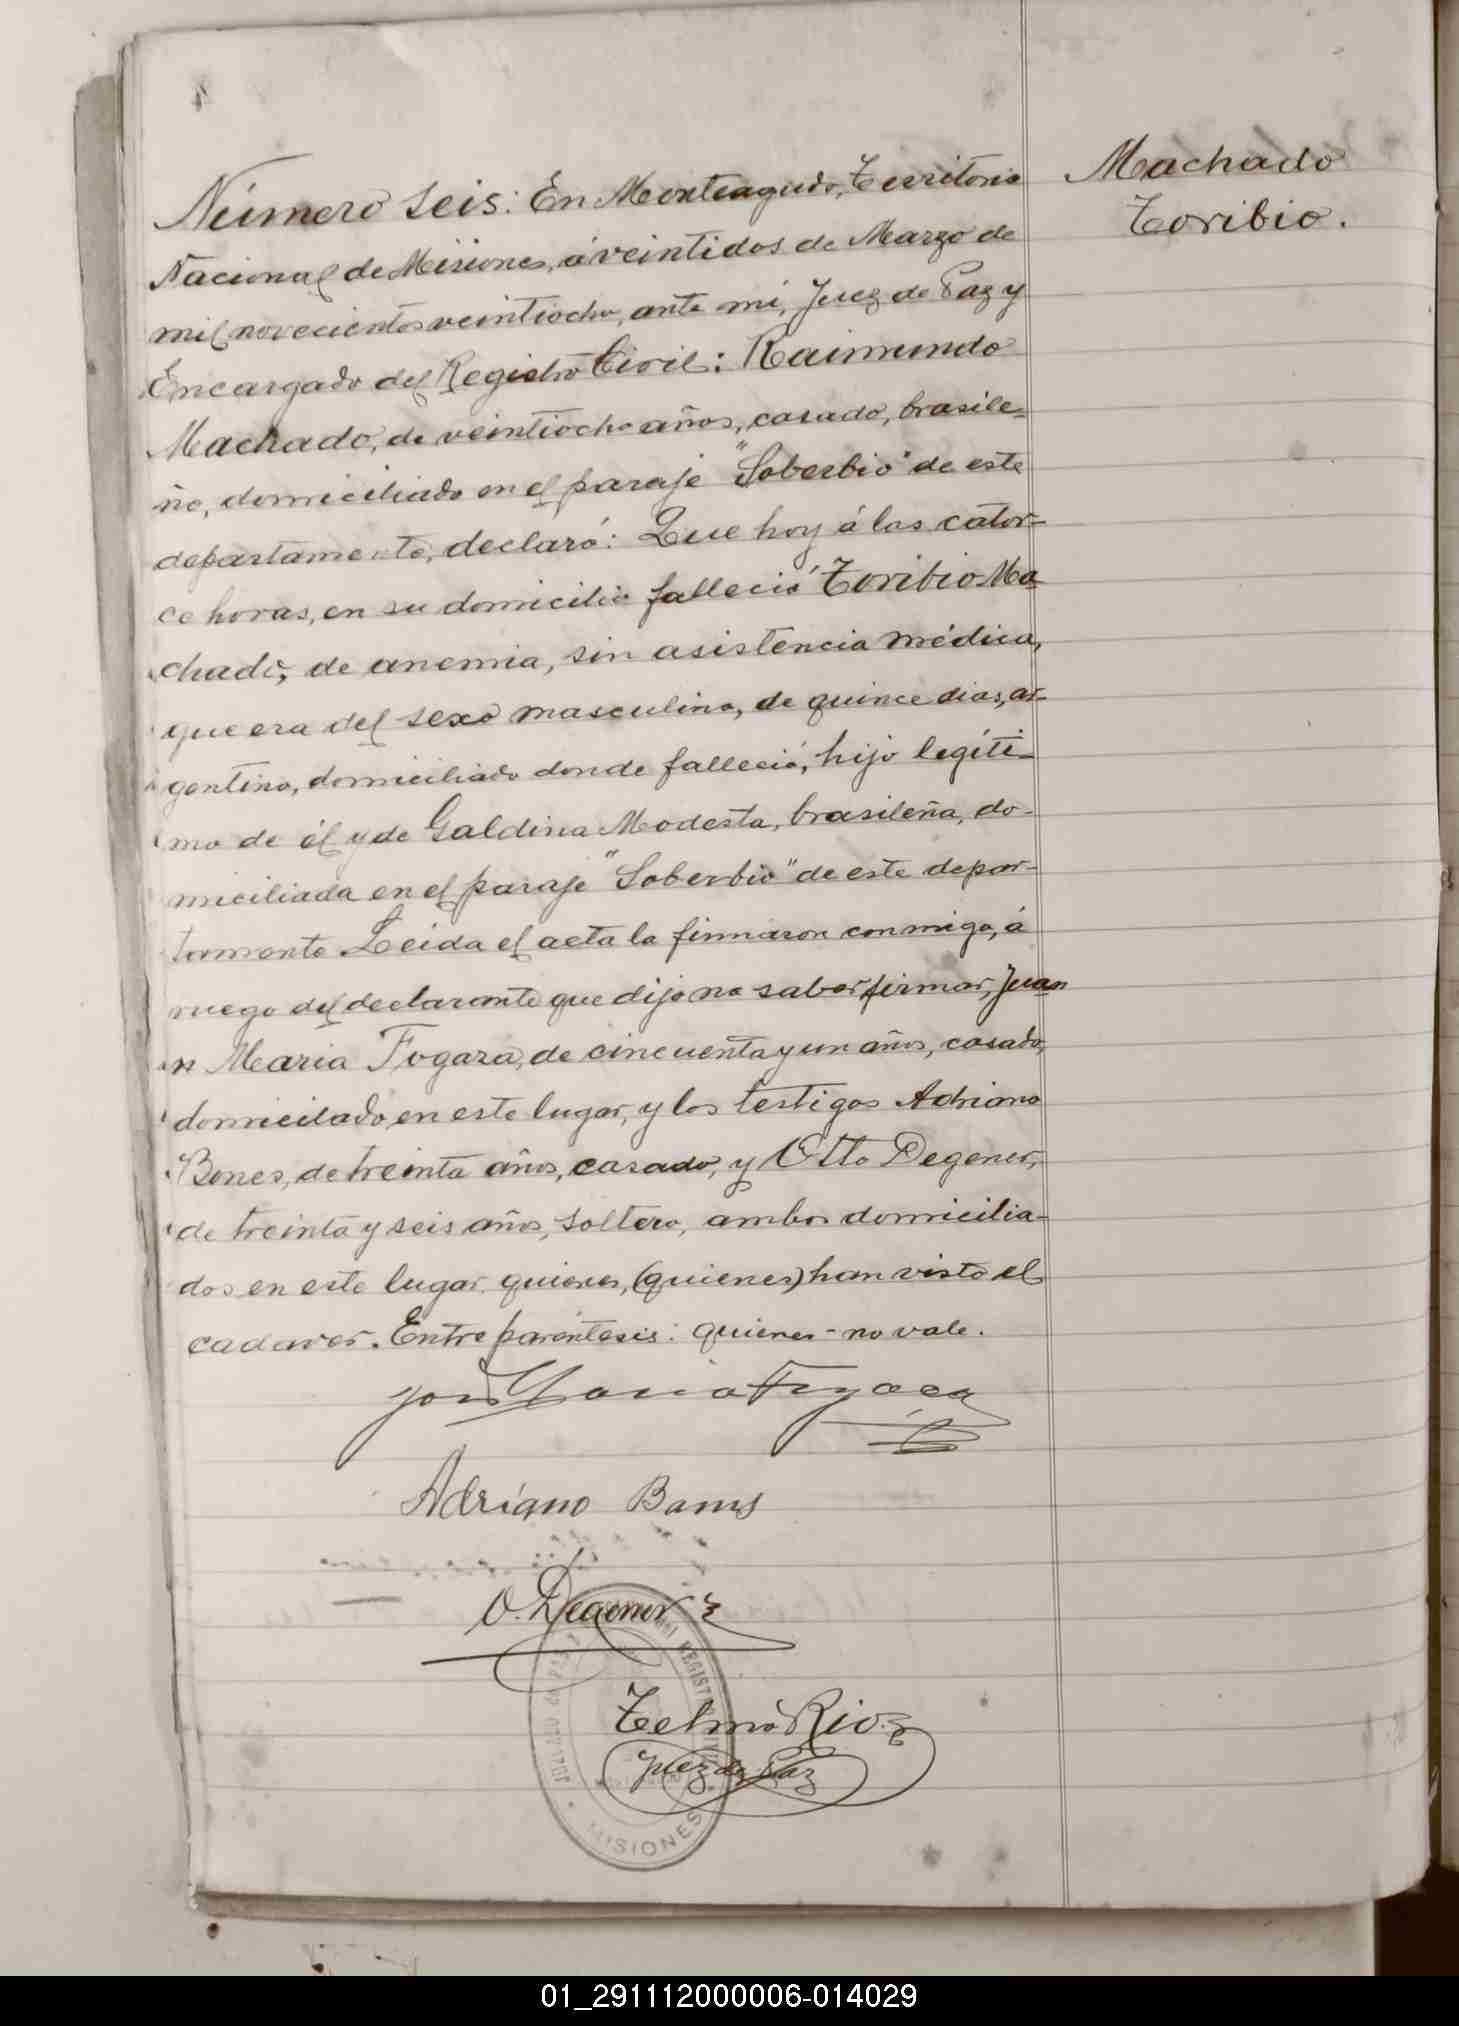 Número seis: En Monteagudo, Territorio
Nacional de Misiones, á veintidos de Marzo de
mil novecientos veintiocho, ante mí, Juez de Paz y
Encargado del Registro Civil: Raimundo
Machado, de veintiocho años, casado, brasile=
ño, domiciliado en el paraje "Soberbio" de este
departamento, declaró: Que hoy á las cator=
ce horas, en su domicilio falleció Toribio Ma
chado, de anemia, sin asistencia médica,
que era del sexo masculino, de quince dias, ar-
gentino, domiciliado donde falleció, hijo legíti-
mo de él y de Galdina Modesta, brasileña, do-
miciliada en el paraje "Soberbio" de este depar-
tamento Leida el acta la firmaron conmigo, á
ruego del declarante que dijo no saber firmar, Juan
n Maria Fogaza, de cincuenta y un años, casado,
domicilado en este lugar, y los testigos Adriano
Bones, de treinta años, casado, y Otto Degener,
de treinta y seis años, soltero, ambos domicilia-
dos en este lugar quienes, (quienes) han visto el
cadaver. Entre paréntesis: quienes - no vale.
Adriano
O. Degener
Telmo Rios
Juez de Paz
REGISTRO CIVIL
MISIONES
Machado
Toribio.
01_291112000006-014029